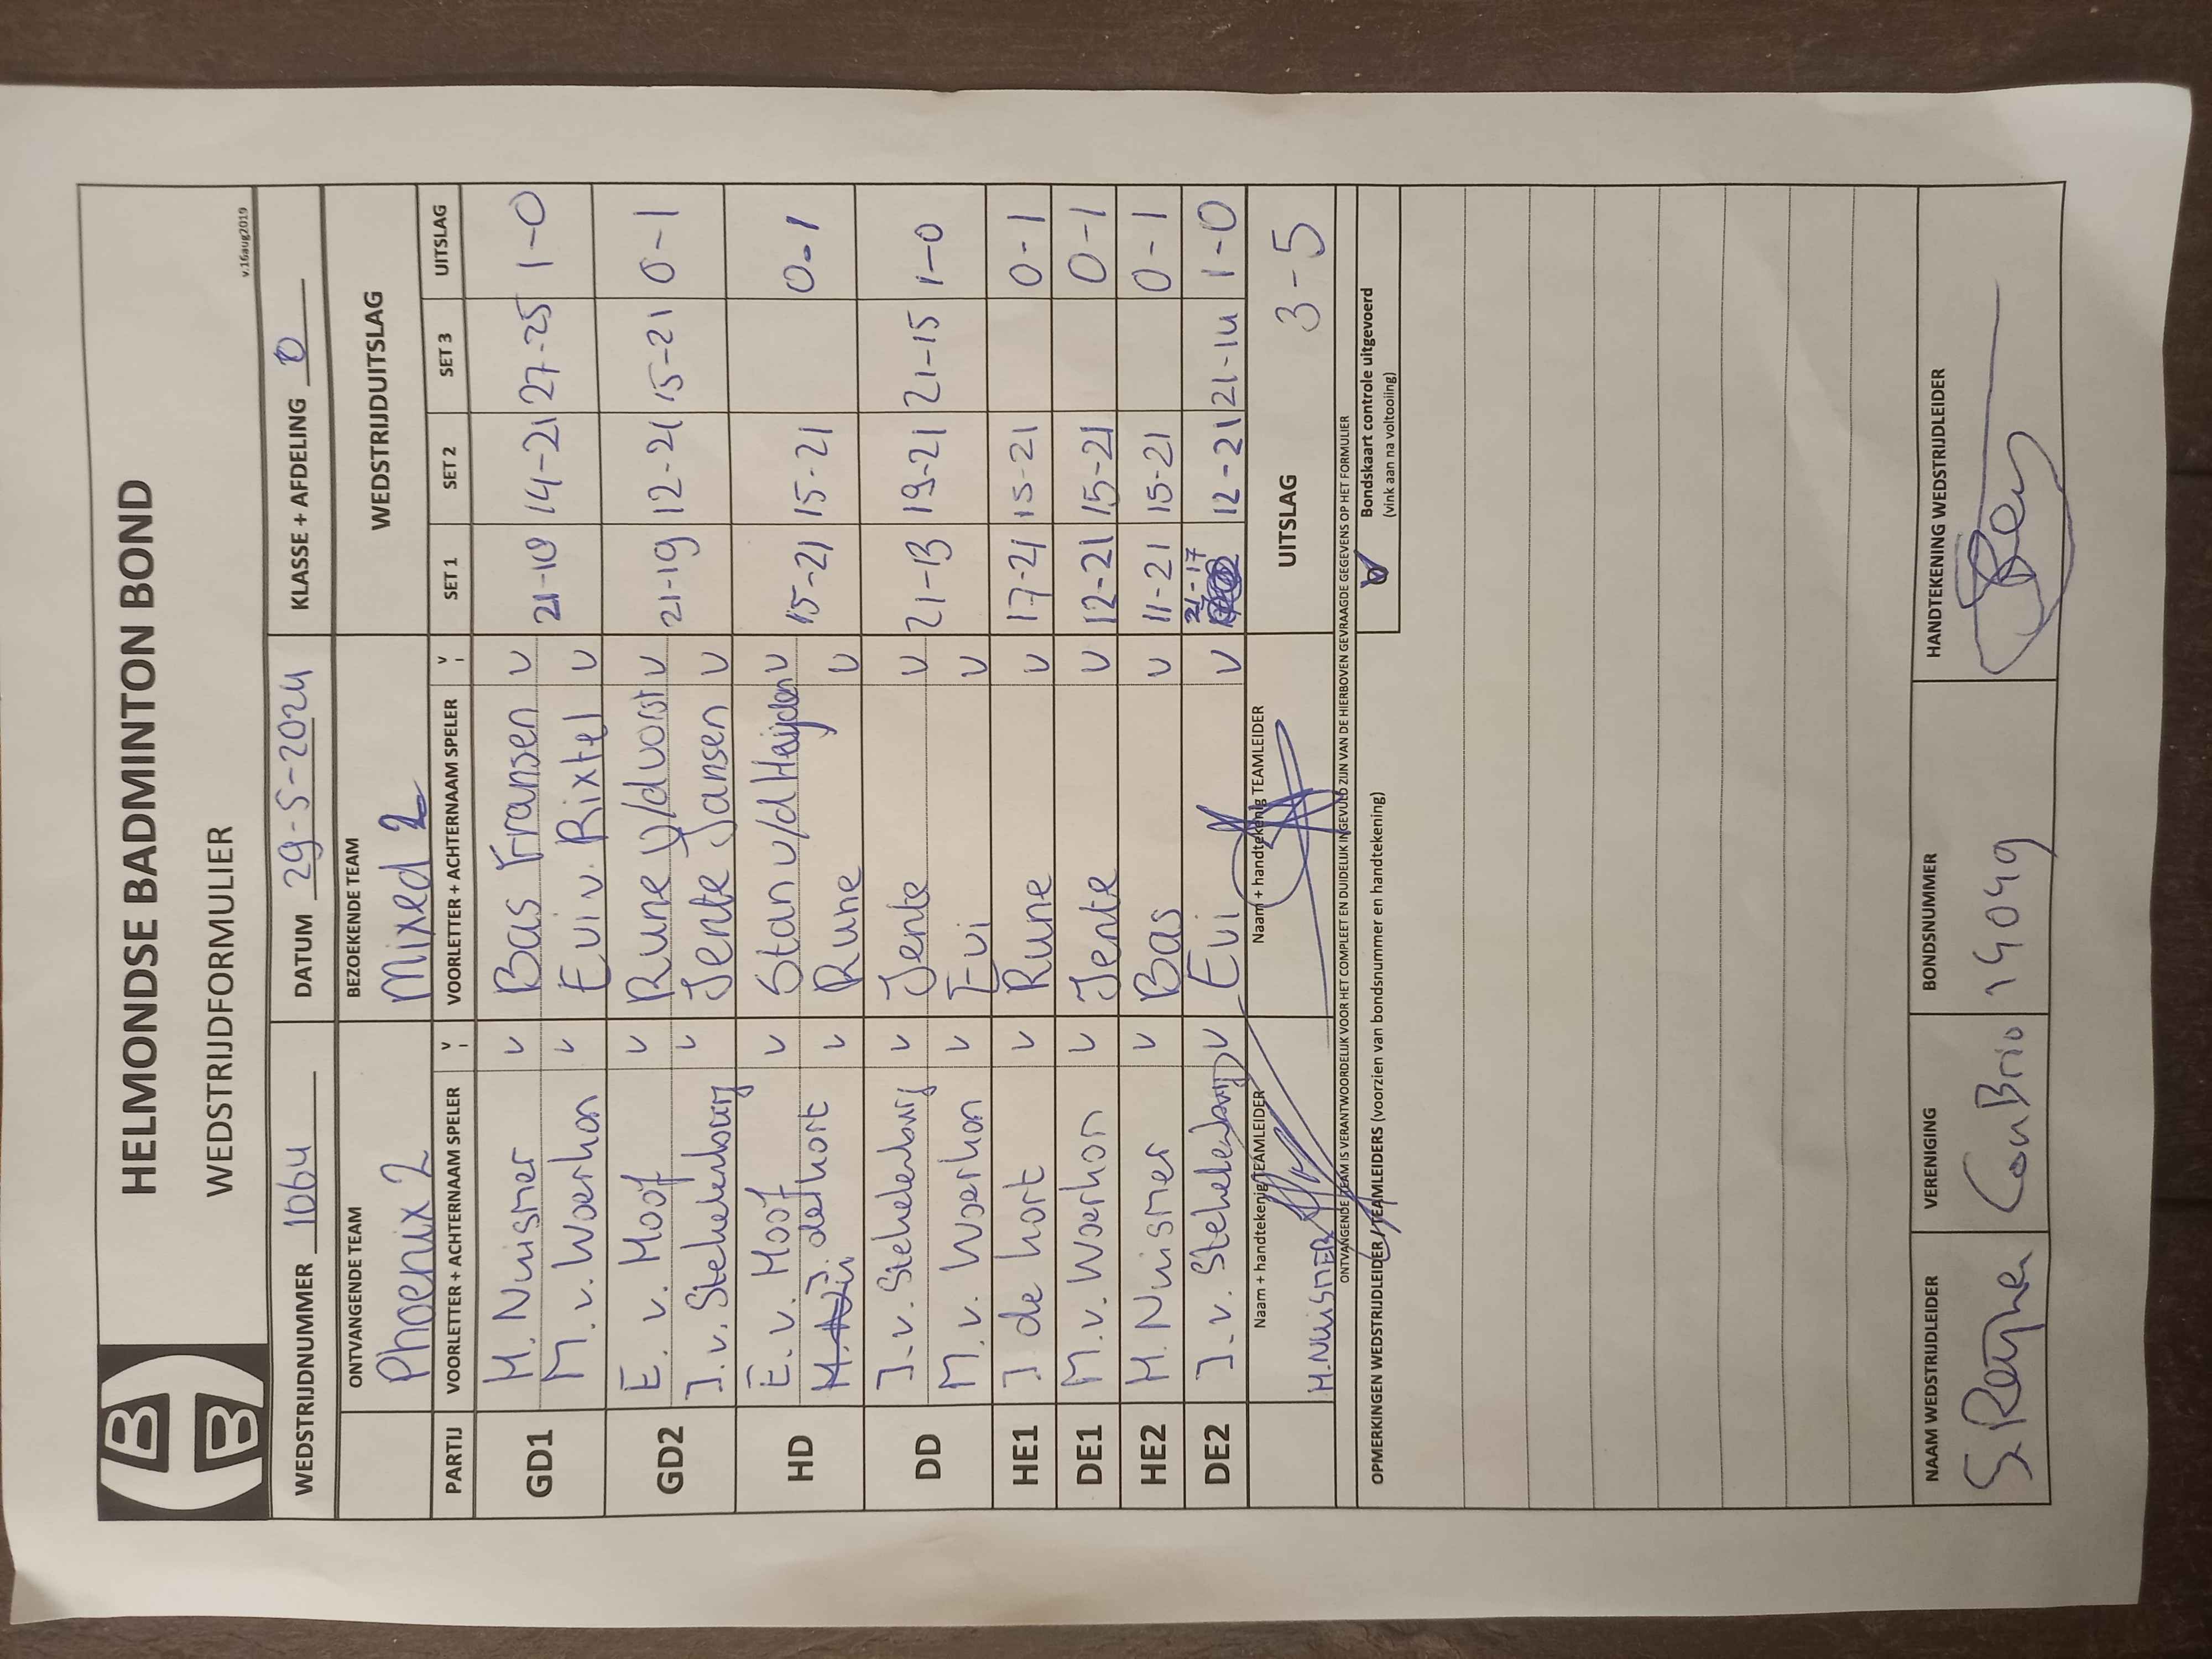 HELMONDSE BADMINTON BOND
WEDSTRIJDFORMULIER
v.16aug2019
WEDSTRIJDNUMMER 1064 DATUM 29-5-2024 KLASSE + AFDELING 0
ONTVANGENDE TEAM BEZOEKENDE TEAM WEDSTRIJDUITSLAG
Phoenix 2 Mixed 2
PARTIJ VOORLETTER + ACHTERNAAM SPELER V VOORLETTER + ACHTERNAAM SPELER V SET 1 SET 2 SET 3 UITSLAG
GD1 M. Nuismer v Bas Fransen v 21-18 14-21 27-25 1-0
M. v. Woerkom v Evi v. Rixtel v
GD2 E. v. Hoof v Rune v/d vorst v 21-19 12-21 15-21 0-1
J. v. Stekelenburg v Jente Jansen v
HD E. v. Hoof v Stan v/d Heijden v 15-21 15-21 0-1
J. de hort v Rune v
DD J. v. Stekelenburg v Jente v 21-13 19-21 21-15 1-0
M. v. Woerkom v Evi v
HE1 J. de hort v Rune v 17-21 15-21 0-1
DE1 M. v. Woerkom v Jente v 12-21 15-21 0-1
HE2 M. Nuismer v Bas v 11-21 15-21 0-1
DE2 J. v. Stekelenburg v Evi v 21-17 12-21 21-14 1-0
Naam + handtekenig TEAMLEIDER Naam + handtekenig TEAMLEIDER UITSLAG 3-5
M. NUISMER
ONTVANGENDE TEAM IS VERANTWOORDELIJK VOOR HET COMPLEET EN DUIDELIJK INGEVULD ZIJN VAN DE HIERBOVEN GEVRAAGDE GEGEVENS OP HET FORMULIER
OPMERKINGEN WEDSTRIJDLEIDER / TEAMLEIDERS (voorzien van bondsnummer en handtekening)
Bondskaart controle uitgevoerd
(vink aan na voltooiing)
NAAM WEDSTRIJDLEIDER VERENIGING BONDSNUMMER HANDTEKENING WEDSTRIJDLEIDER
ConBrio 14049